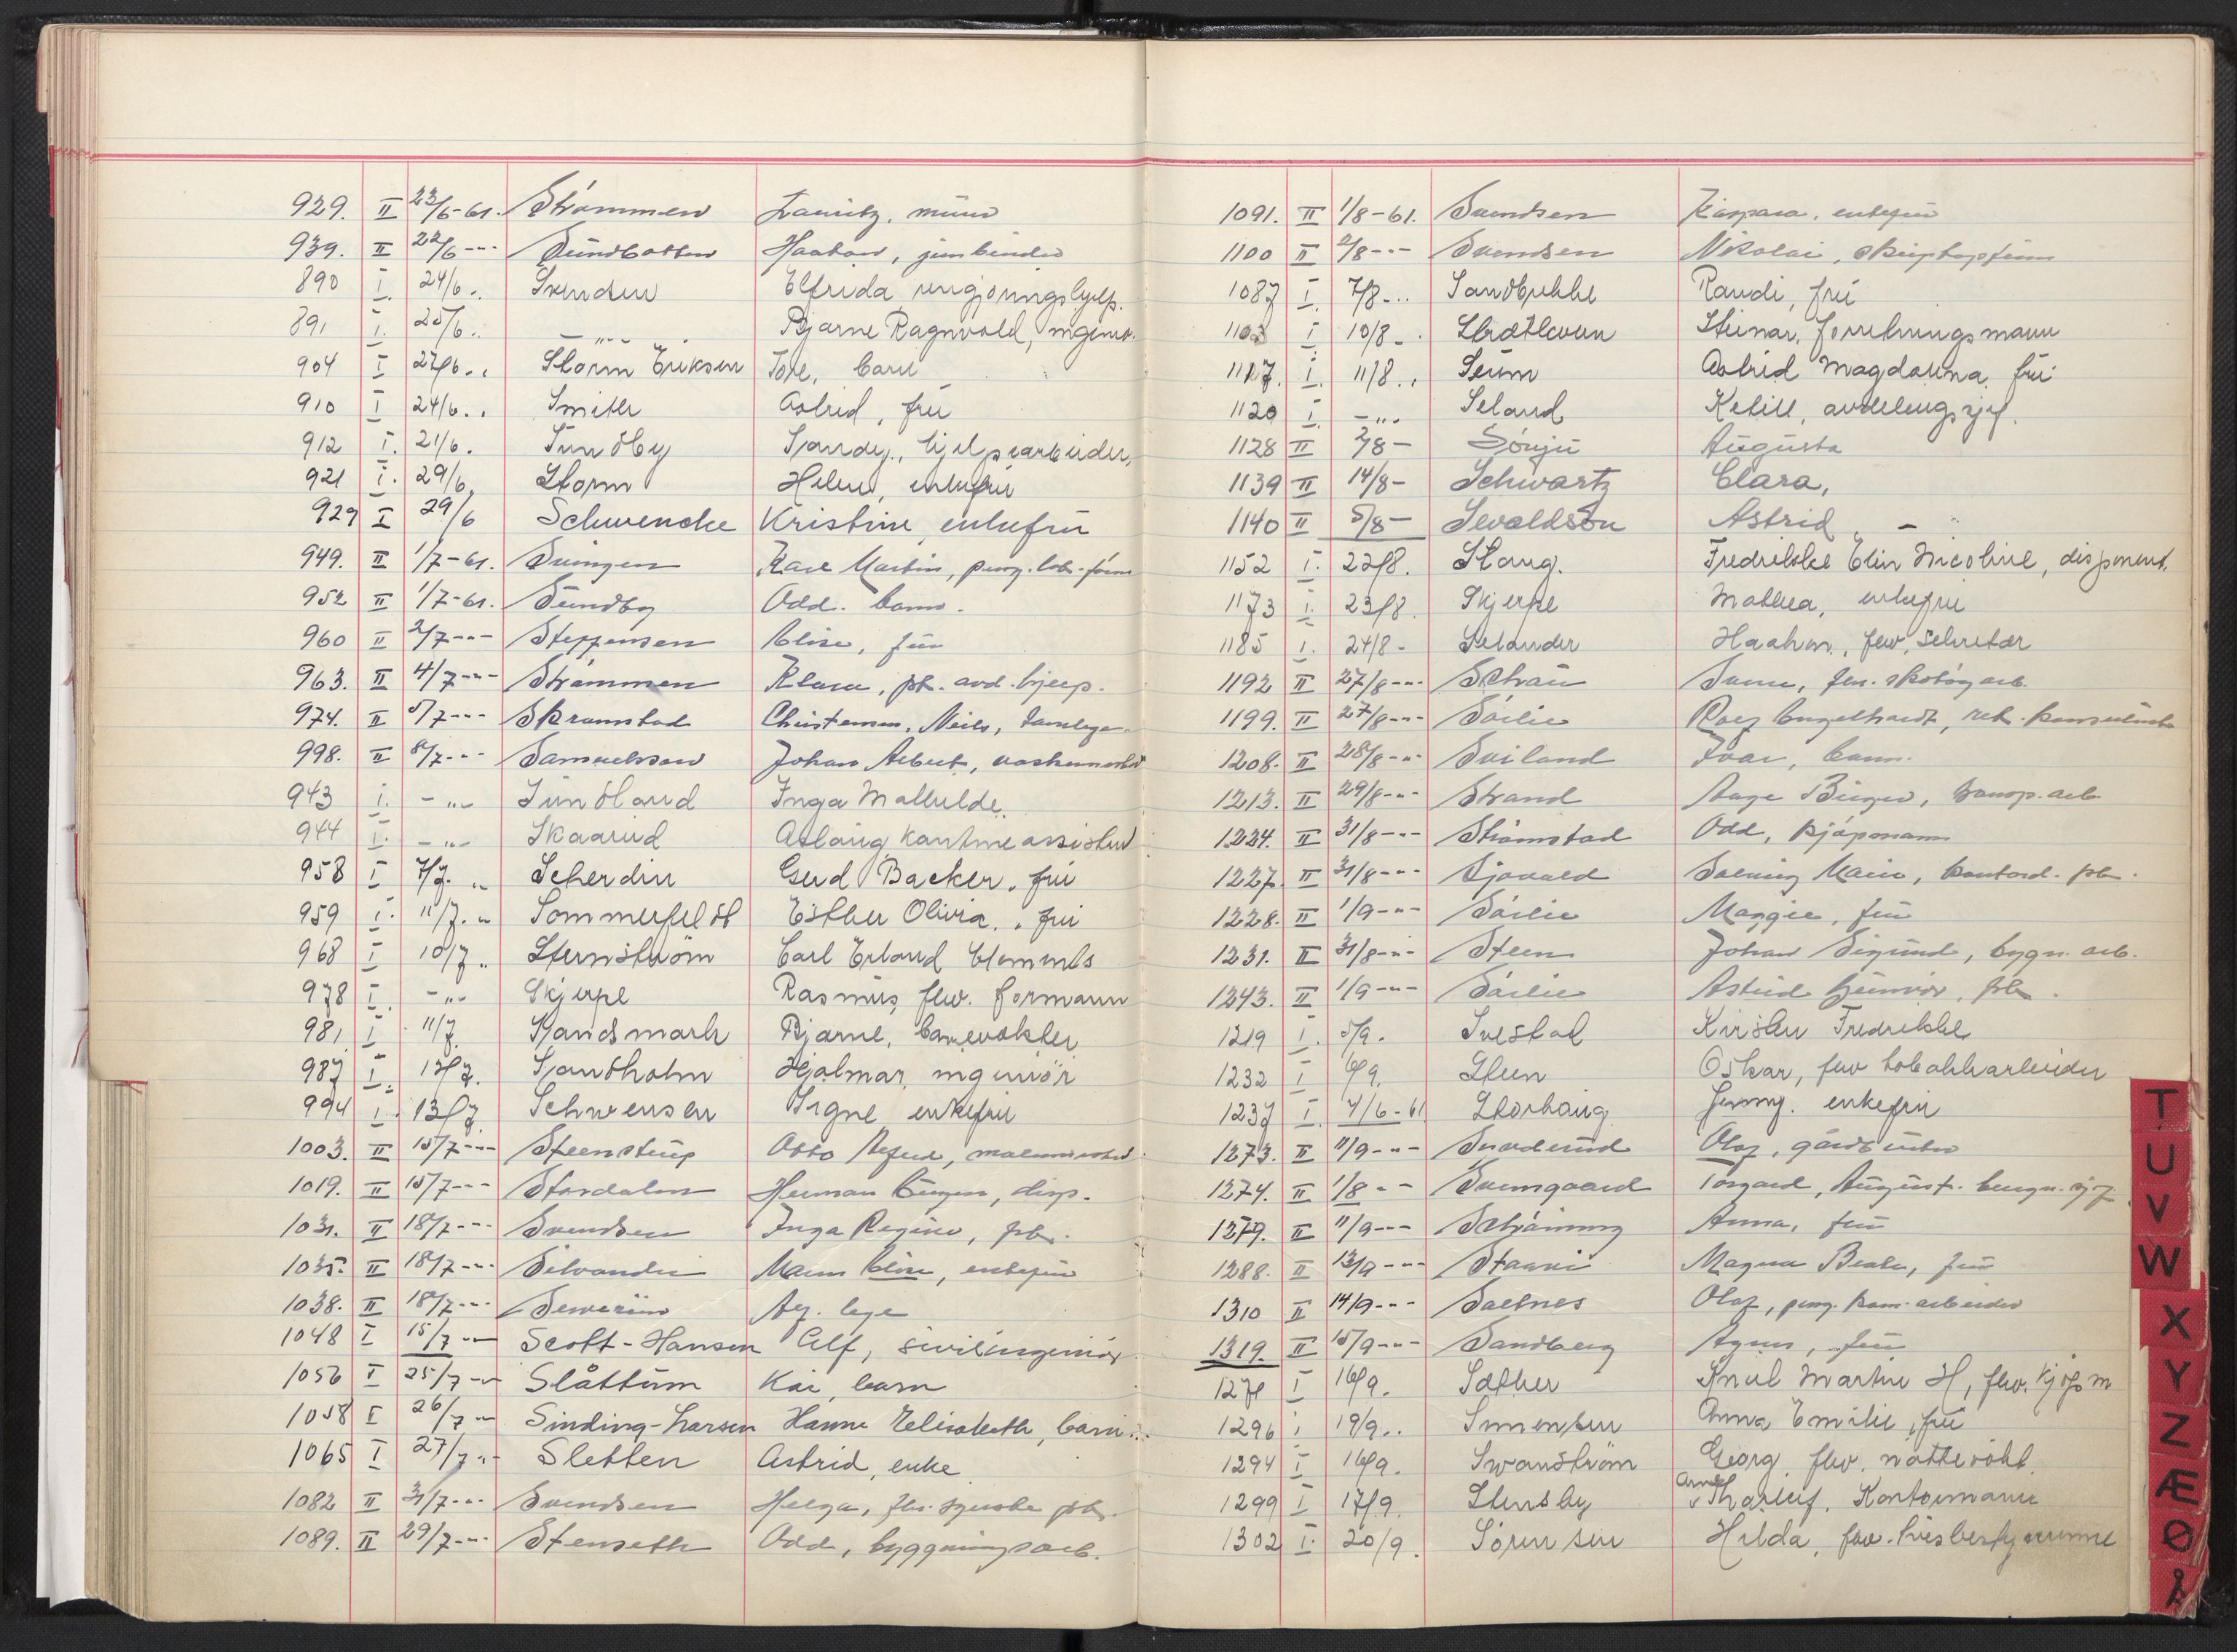 929. II 23/6-61. Strömmen Lauritz, murer
939. II 22/6-"- Sundbotten Haakon, jernbinder
890 I. 24/6 .. Svendsen Elfrida rengjöringshjelp.
891 I. 25/6 .. - " - Bjarne Ragnvald, ingeniör.
904 I 27/6 .. Storm Eriksen Tore, barn
910 I 24/6 .. Smith Astrid, frü
912 I. 21/6. Sundby Sandy., hjelpearbeider,
921 I. 29/6. Storm Helene, enkefrü
929 I 29/6 Schwencke Kristine, enkefrü
949. II 1/7-61. Svingen Karl Martin,
952 II 1/7-61. Sundby Odd. barn.
960 II 2/7-"- Steffensen Elise, frü
963. II 4/7-"- Strömmen Klara, pk. avd. hjelp.
974. II 5/7-"- Skramstad Christensen, Niels, tannlege
998. II 8/7-"- Samuelsson Johan Albert,
943 I. - " - Sündland Inga Mathilde.
944 I. - " - Skaarud Aslaüg kantineassistent
958 I 7/7. " Scherdin Gerd Backer, frü
959 I. 11/7. " Sommerfeldt Esther Olivia., frü
968 I 10/7 .. Sternström Carl Erland Clements
978 I. - " - Skjerpe Rasmüs, fhv. formann
981 I 11/7. Sandsmark Bjarne,
987 I. 12/7. Sandholm Hjalmar, ingeniör
994 I. 13/7 Schwensen Signe enkefrü
1003. II 15/7-"- Steenstrup Otto
1019. II 15/7-"- Stordalen Herman Birger, disp.
1031. II 18/7-"- Svendsen Inga Regine, pk.
1035. II 18/7-"- Silvander Maren Elise, enkefrü
1038. II 18/7-"- lege
1048 I 15/7 -"- Scott-Hansen Alf, sivilingeniör
1056 I 25/7 -"- Slåttum Kai, barn
1058 I 26/7 -"- Sinding-Larsen Hanne Elisabeth, barn.
1065 I 27/7 -"- Sletten Astrid, enke
1082 II 31/7-"- Svendsen Helga, fhv. syerske pk.
1089. II 29/7-"- Stenseth Odd, bygningsarb.
1091. II 1/8-61. Svendsen Kaspara, enkefrü
1100 II 2/8-"- Svendsen Nikolai,
1087 I. 7/8 -.. Sandbekkl Randi, frü
1103 I 10/8 - Steinar, forretningsmann
1117. I. 11/8 .. Seim Astrid Magdalena, frü
1120 I. - " - Seland Ketill, avdelingssjef.
1128 II 7/8 - Sönju Augusta
1139 II 14/8 - Schwartz Clara,
1140 II 5/8 - Sevaldson Astrid, -
1152 I. 22/8. Stang. Fredrikke Elin Nicoline, disponent.
1173 I. 23/8. Skjerpe Mathea, enkefrü
1185 I. 24/8 - Selander Haakon, fhv. sekretær
1192 II 27/8-"- fhv. skotöyarb.
1199. II 27/8-"- Sörlie Rolf Engelhardt, rek. konsulent
1208. II 28/8-"- Sviland Ivar, barn.
1213. II 29/8-"- Strand Aage Birger, transp. arb.
1224. II 31/8-"- Strömstad Odd, kjöpmann
1227. II 31/8-"- Sjovald Solveig Marie, kontord. pk.
1228. II 1/9-"- Sörlie Maggie, frü
1231. II 31/8-"- Steen Johan Sigurd, bygn. arb.
1243. II 1/9-"- Sörlie Astrid Gunvor, pk.
1219 I. 5/9. Svestad Kirsten Fredrikke
1232 I 6/9. Steen Oskar, fhv tobakkarbeider
1237 I. 7/6-61 Storhaug Jenny. enkefrü
1273. II 11/9-"- Snaderud Olaf, gårdbruker
1274. II 1/8 -"- Svensgaard Torgard, August.
1279. II 11/9-"- Schjönning Anna, frü
1288. II 13/9-"- Stavri Magna Beate, frü
1310 II 14/9-"- Saetnes Olaf,
1319. II 15/9-"- Sandberg Agnes, frü
1271 I 16/9. Sæther Emil Martin H, fhv. kjöpm
1296 I 19/9.. Simensen Anna Emilie, frü
1294 I 16/9. Swanström Georg, fhv. nattevakt
1299 I 17/9. Stensby Arne Thorleif. Kontormann
1302 I. 20/9. Sörensen Hilda, fhv. husbestyrerinne
T
U
V
W
X
Y
Z
Æ
Ø
Å